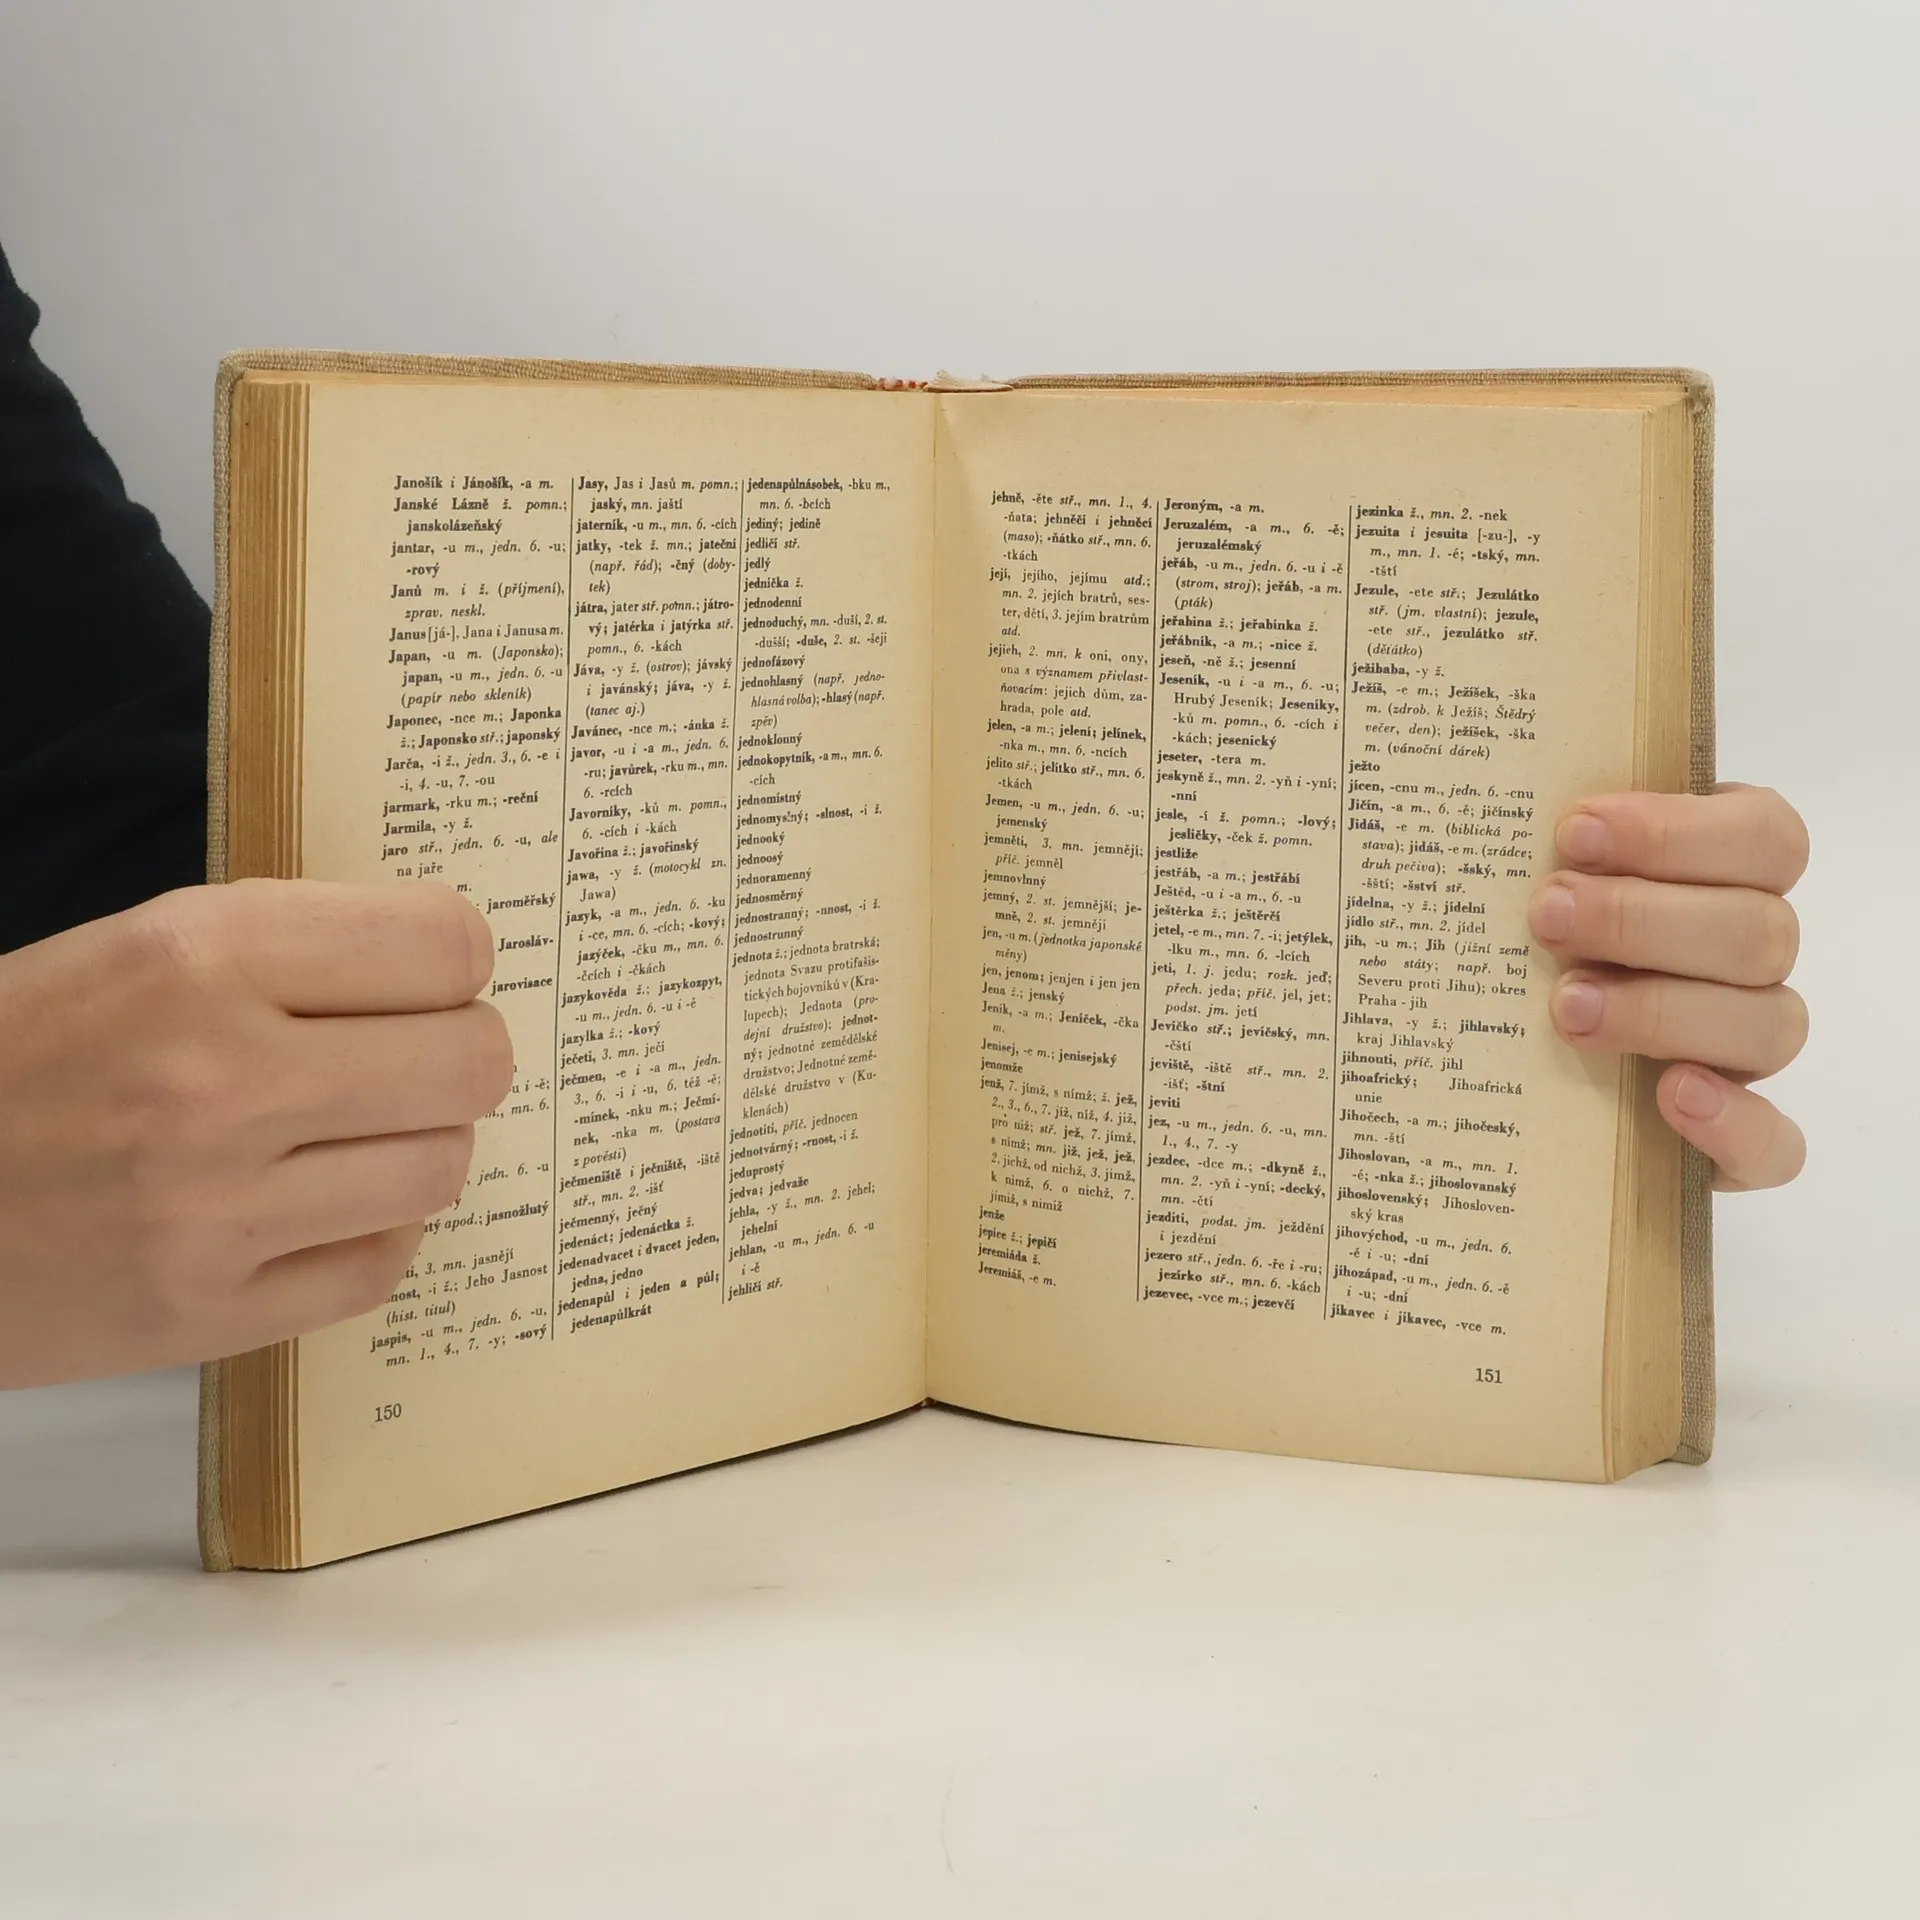 Janošík i Jánošík, -a m.
Janské Lázně ž. pomn.;
janskolázeňský
jantar, -u m., jedn. 6. -u;
-rový
Janů m. i ž. (příjmení),
zprav. neskl.
Janus [já-], Jana i Janusa m.
Japan, -u m. (Japonsko);
japan, -u m., jedn. 6. -u
(papír nebo skleník)
Japonec, -nce m.; Japonka
ž.; Japonsko stř.; japonský
Jarča, -i ž., jedn. 3., 6. -e i
-i, 4. -u, 7. -ou
jarmark, -rku m.; -reční
Jarmila, -y ž.
jaro stř., jedn. 6. -u, ale
na jaře
m.
jaroměřský
Jarosláv-
jarovisace
-u i -ě;
mn. 6.
jedn. 6. -u
apod.; jasnožlutý
3. mn. jasnějí
-i ž.; Jeho Jasnost
(hist. titul)
jaspis, -u m., jedn. 6. -u,
mn. 1., 4., 7. -y; -sový
150
Jasy, Jas i Jasů m. pomn.;
jaský, mn. jaští
jaterník, -u m., mn. 6. -cích
jatky, -tek ž. mn.; jateční
(např. řád); -čný (doby-
tek)
játra, jater stř. pomn.; játro-
vý; jatérka i jatýrka stř.
pomn., 6. -kách
Jáva, -y ž. (ostrov); jávský
i javánský; jáva, -y ž.
(tanec aj.)
Javánec, -nce m.; -ánka ž.
javor, -u i -a m., jedn. 6.
-ru; javůrek, -rku m., mn.
6. -rcích
Javorníky, -ků m. pomn.,
6. -cích i -kách
Javořina ž.; javořinský
jawa, -y ž. (motocykl zn.
Jawa)
jazyk, -a m., jedn. 6. -ku
i -ce, mn. 6. -cích; -kový;
jazýček, -čku m., mn. 6.
-čcích i -čkách
jazykověda ž.; jazykozpyt,
-u m., jedn. 6. -u i -ě
jazylka ž.; -kový
ječeti, 3. mn. ječí
ječmen, -e i -a m., jedn.
3., 6. -i i -u, 6. též -ě;
-mínek, -nku m.; Ječmí-
nek, -nka m. (postava
z pověsti)
ječmeniště i ječniště, -iště
stř., mn. 2. -išť
ječmenný, ječný
jedenáct; jedenáctka ž.
jedenadvacet i dvacet jeden,
jedna, jedno
jedenapůl i jeden a půl;
jedenapůlkrát
jedenapůlnásobek, -bku m.,
mn. 6. -bcích
jediný; jedině
jedličí stř.
jedlý
jednička ž.
jednodenní
jednoduchý, mn. -duší, 2. st.
-dušší; -duše, 2. st. -šeji
jednofázový
jednohlasný (např. jedno-
hlasná volba); -hlasý (např.
zpěv)
jednoklonný
jednokopytník, -a m., mn. 6.
-cích
jednomístný
jednomyslný; -slnost, -i ž.
jednooký
jednoosý
jednoramenný
jednosměrný
jednostranný; -nnost, -i ž.
jednostrunný
jednota ž.; jednota bratrská;
jednota Svazu protifašis-
tických bojovníků v (Kra-
lupech); Jednota (pro-
dejní družstvo); jednot-
ný; jednotné zemědělské
družstvo; Jednotné země-
dělské družstvo v (Ku-
klenách)
jednotiti, příč. jednocen
jednotvárný; -rnost, -i ž.
jeduprostý
jedva; jedvaže
jehla, -y ž., mn. 2. jehel;
jehelní
jehlan, -u m., jedn. 6. -u
i -ě
jehličí stř.
jehně, -ěte stř., mn. 1., 4.
-ňata; jehněčí i jehněcí
(maso); -ňátko stř., mn. 6.
-tkách
její, jejího, jejímu atd.;
mn. 2. jejích bratrů, ses-
ter, dětí, 3. jejím bratrům
atd.
jejich, 2. mn. k oni, ony,
ona s významem přivlast-
ňovacím: jejich dům, za-
hrada, pole atd.
jelen, -a m.; jelení; jelínek,
-nka m., mn. 6. -ncích
jelito stř.; jelítko stř., mn. 6.
-tkách
Jemen, -u m., jedn. 6. -u;
jemenský
jemněti, 3. mn. jemnějí;
příč. jemněl
jemnovlnný
jemný, 2. st. jemnější; je-
mně, 2. st. jemněji
jen, -u m. (jednotka japonské
měny)
jen, jenom; jenjen i jen jen
Jena ž.; jenský
Jeník, -a m.; Jeníček, -čka
m.
Jenisej, -e m.; jenisejský
jenomže
jenž, 7. jímž, s nímž; ž. jež,
2., 3., 6., 7. již, níž, 4. již,
pro niž; stř. jež, 7. jímž,
s nímž; mn. již, jež, jež,
2. jichž, od nichž, 3. jimž,
k nimž, 6. o nichž, 7.
jimiž, s nimiž
jenže
jepice ž.; jepičí
jeremiáda ž.
Jeremiáš, -e m.
Jeroným, -a m.
Jeruzalém, -a m., 6. -ě;
jeruzalémský
jeřáb, -u m., jedn. 6. -u i -ě
(strom, stroj); jeřáb, -a m.
(pták)
jeřabina ž.; jeřabinka ž.
jeřábník, -a m.; -nice ž.
jeseň, -ně ž.; jesenní
Jeseník, -u i -a m., 6. -u;
Hrubý Jeseník; Jeseníky,
-ků m. pomn., 6. -cích i
-kách; jesenický
jeseter, -tera m.
jeskyně ž., mn. 2. -yň i -yní;
-nní
jesle, -í ž. pomn.; -lový;
jesličky, -ček ž. pomn.
jestliže
jestřáb, -a m.; jestřábí
Ještěd, -u i -a m., 6. -u
ještěrka ž.; ještěrčí
jetel, -e m., mn. 7. -i; jetýlek,
-lku m., mn. 6. -lcích
jeti, 1. j. jedu; rozk. jeď;
přech. jeda; příč. jel, jet;
podst. jm. jetí
Jevíčko stř.; jevíčský, mn.
-čští
jeviště, -iště stř., mn. 2.
-išť; -štní
jeviti
jez, -u m., jedn. 6. -u, mn.
1., 4., 7. -y
jezdec, -dce m.; -dkyně ž.,
mn. 2. -yň i -yní; -decký,
mn. -čtí
jezditi, podst. jm. ježdění
i jezdění
jezero stř., jedn. 6. -ře i -ru;
jezírko stř., mn. 6. -kách
jezevec, -vce m.; jezevčí
jezinka ž., mn. 2. -nek
jezuita i jesuita [-zu-], -y
m., mn. 1. -é; -tský, mn.
-tští
Jezule, -ete stř.; Jezulátko
stř. (jm. vlastní); jezule,
-ete stř., jezulátko stř.
(děťátko)
ježibaba, -y ž.
Ježíš, -e m.; Ježíšek, -ška
m. (zdrob. k Ježíš; Štědrý
večer, den); ježíšek, -ška
m. (vánoční dárek)
ježto
jícen, -cnu m., jedn. 6. -cnu
Jičín, -a m., 6. -ě; jičínský
Jidáš, -e m. (biblická po-
stava); jidáš, -e m. (zrádce;
druh pečiva); -šský, mn.
-šští; -šství stř.
jídelna, -y ž.; jídelní
jídlo stř., mn. 2. jídel
jih, -u m.; Jih (jižní země
nebo státy; např. boj
Severu proti Jihu); okres
Praha - jih
Jihlava, -y ž.; jihlavský;
kraj Jihlavský
jihnouti, příč. jihl
jihoafrický; Jihoafrická
unie
Jihočech, -a m.; jihočeský,
mn. -ští
Jihoslovan, -a m., mn. 1.
-é; -nka ž.; jihoslovanský
jihoslovenský; Jihosloven-
ský kras
jihovýchod, -u m., jedn. 6.
-ě i -u; -dní
jihozápad, -u m., jedn. 6. -ě
i -u; -dní
jikavec i jíkavec, -vce m.
151